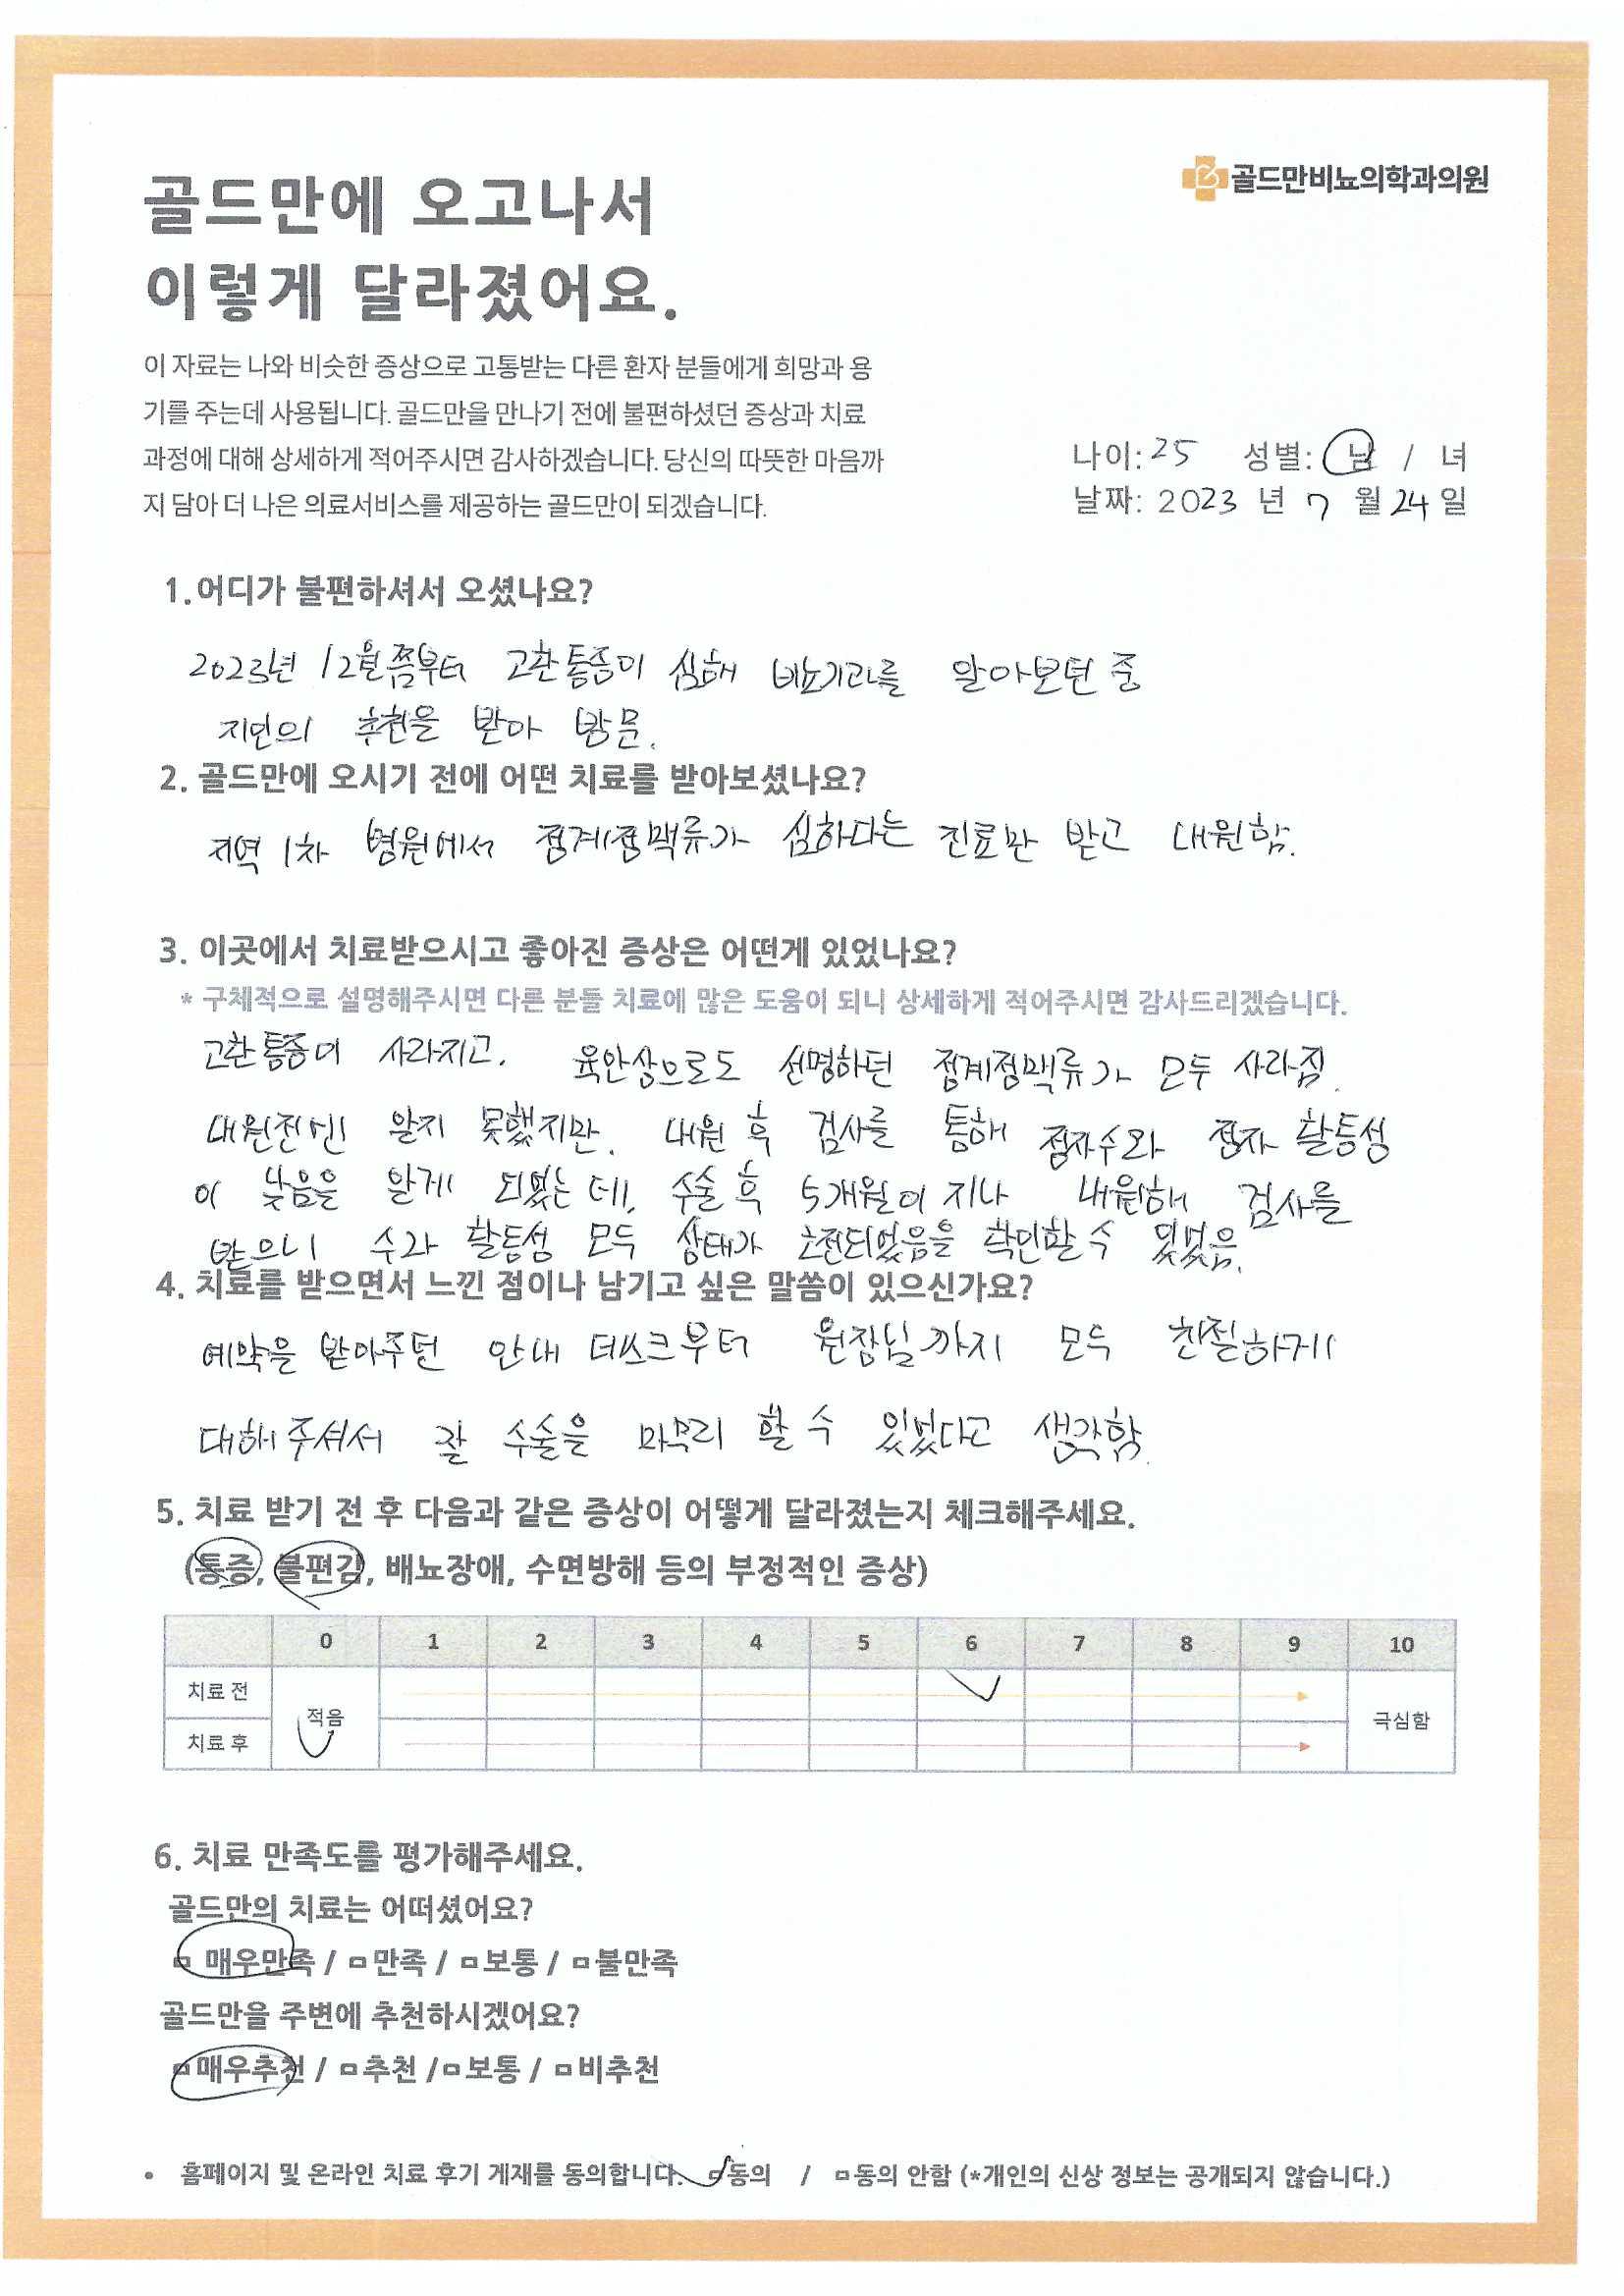 골드만비뇨의학과의원
골드만에 오고나서
이렇게 달라졌어요.
이 자료는 나와 비슷한 증상으로 고통받는 다른 환자 분들에게 희망과 용
기를 주는데 사용됩니다. 골드만을 만나기 전에 불편하셨던 증상과 치료
과정에 대해 상세하게 적어주시면 감사하겠습니다. 당신의 따뜻한 마음까
지 담아 더 나은 의료서비스를 제공하는 골드만이 되겠습니다.
나이: 25 성별: 남 / 녀
날짜: 2023 년 7 월 24 일
1.어디가 불편하셔서 오셨나요?
2023년 12월쯤부터 고환통증이 심해 비뇨기과를 알아보던 중
지인의 추천을 받아 방문.
2. 골드만에 오시기 전에 어떤 치료를 받아보셨나요?
지역 1차 병원에서 정계정맥류가 심하다는 진료만 받고 내원함.
3. 이곳에서 치료받으시고 좋아진 증상은 어떤게 있었나요?
* 구체적으로 설명해주시면 다른 분들 치료에 많은 도움이 되니 상세하게 적어주시면 감사드리겠습니다.
고환통증이 사라지고. 육안상으로도 선명하던 정계정맥류가 모두 사라짐.
내원전엔 알지 못했지만. 내원 후 검사를 통해 정자수와 정자 활동성
이 낮음을 알게 되었는데, 수술 후 5개월이 지나 내원해 검사를
받으니 수와 활동성 모두 상태가 호전되었음을 확인할 수 있었음.
4. 치료를 받으면서 느낀 점이나 남기고 싶은 말씀이 있으신가요?
예약을 받아주던 안내 데스크부터 원장님까지 모두 친절하게
대해주셔서 잘 수술을 마무리 할 수 있었다고 생각함.
5. 치료 받기 전 후 다음과 같은 증상이 어떻게 달라졌는지 체크해주세요.
(통증, 불편감, 배뇨장애, 수면방해 등의 부정적인 증상)
0 1 2 3 4 5 6 7 8 9 10
치료 전
적음
극심함
치료 후
6. 치료 만족도를 평가해주세요.
골드만의 치료는 어떠셨어요?
□ 매우만족 / □ 만족 / □ 보통 / □ 불만족
골드만을 주변에 추천하시겠어요?
□ 매우추천 / □ 추천 / □ 보통 / □ 비추천
• 홈페이지 및 온라인 치료 후기 게재를 동의합니다. □ 동의 / □ 동의 안함 (*개인의 신상 정보는 공개되지 않습니다.)